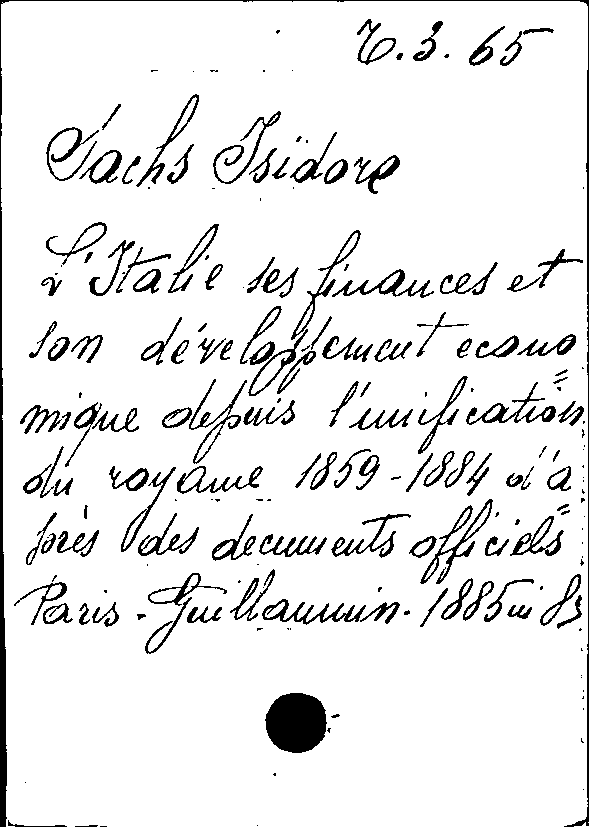 6.3.65
Sachs Isidore
L'Italie ses finances et
son développement econo=
mique depuis l'unification
du royame 1859-1884 d'a=
près des documents officiels
Paris - Guillaumin - 1885 in 8º